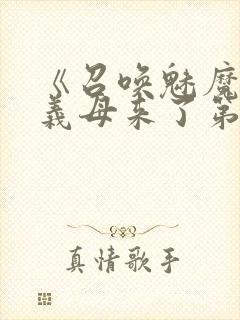 《召唤魅魔
義母来了第
真情歌手